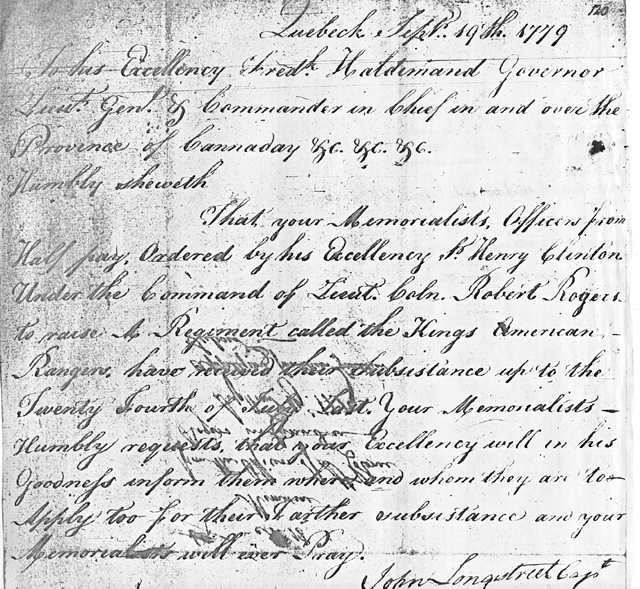 120
Quebeck Sept.r 19th. 1779
To his Excellency Fredk Haldimand Governor
Lieut. Genl. & Commander in Chief in and over the
Province of Cannaday &c. &c. &c.
Humbly sheweth
That your Memorialists, Officers from
Half pay, Ordered by his Excellency Sr. Henry Clinton
Under the Command of Lieut. Coln. Robert Rogers
to raise A Regiment called the Kings American –
Rangers, have received their subsistance up to the
Twenty Fourth of July Last. Your Memorialists –
Humbly requests that your Excellency will in his
Goodness inform them where and whom they are too
Apply too for their Farther subsistance and your
Memorialists will ever Pray.
John Longstreet Capt